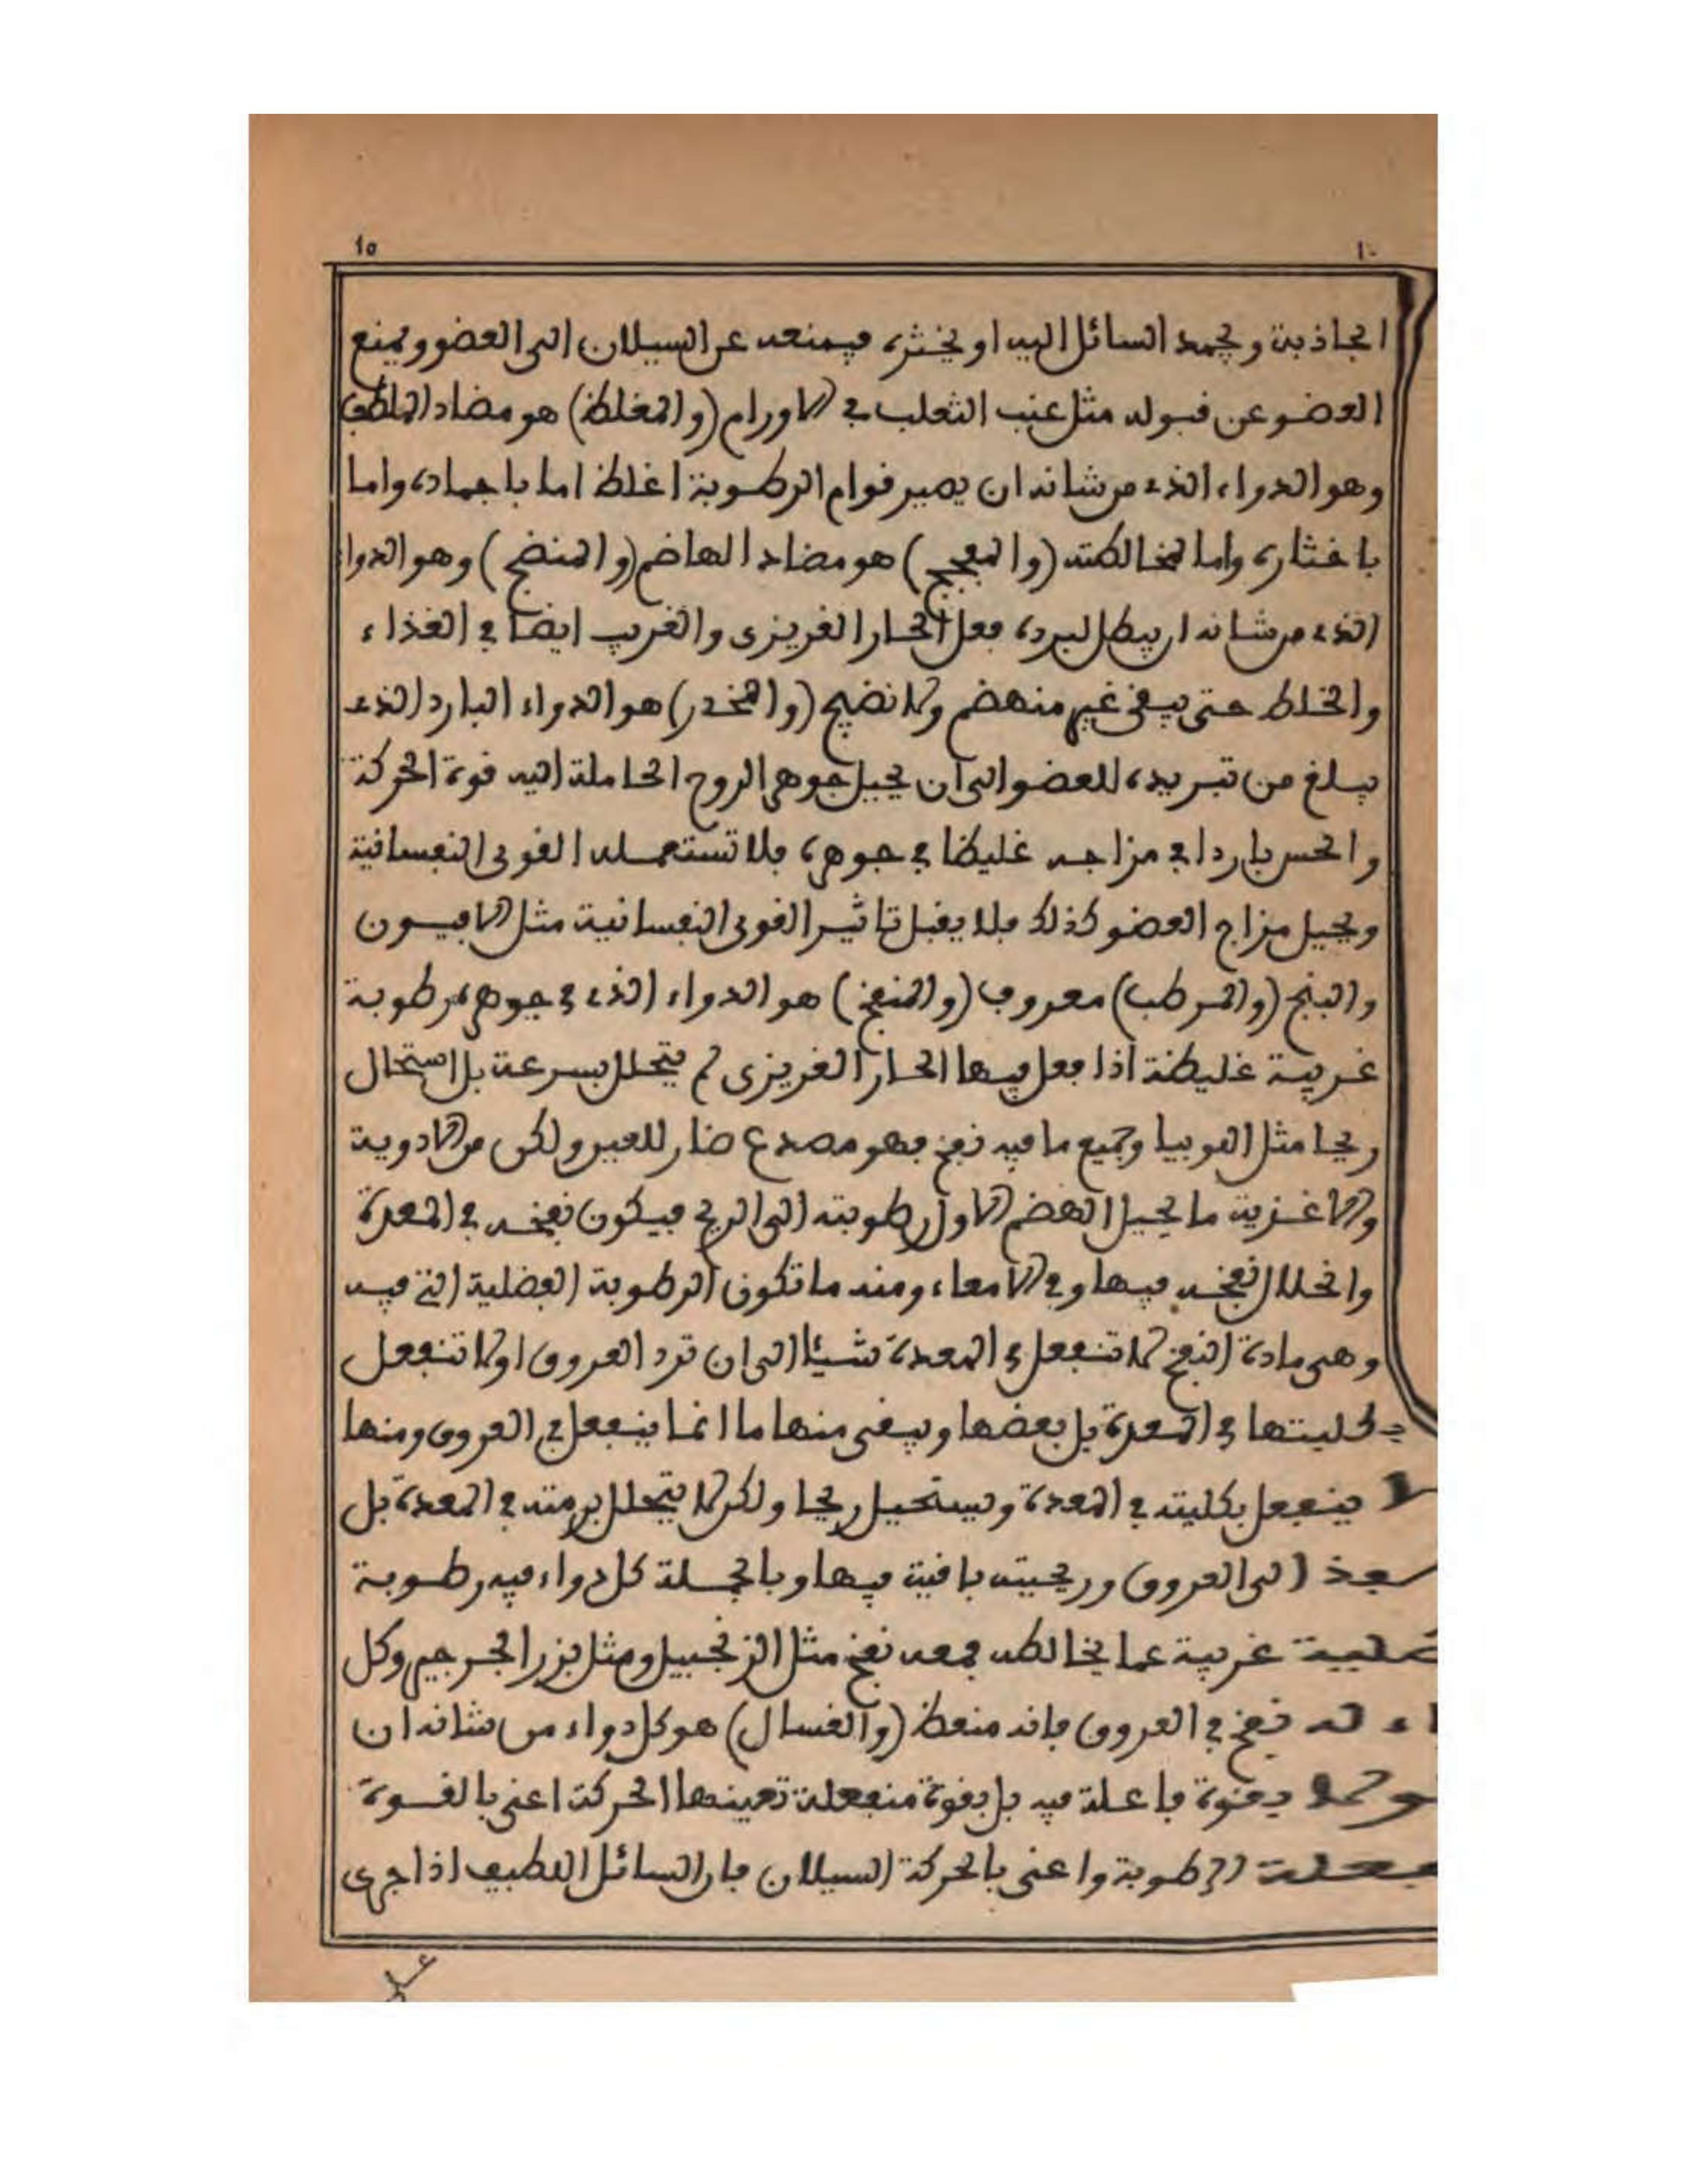 ١٥
١٠
الجاذبة ويجمد السائل اليه او يخثره فيمنعه عن السيلان الى العضو ويمنع
العضو عن قبوله مثل عنب الثعلب في الاورام (والمغلظ) هو مضاد الملطف
وهو الدواء الذي من شانه ان يصير قوام الرطوبة اغلظ اما باجماده واما
باخثاره واما لمخالطته (والمفجج) هو مضاد الهاضم (والمنضج) وهو الدواء
الذي من شانه ان يبطل لبرده فعل الحار الغريزى والغريب ايضا في الغذاء
والخلط حتى يبقى غير منهضم ولا نضيج (والمخدر) هو الدواء البارد الذي
يبلغ من تبريده للعضو الى ان يحيل جوهر الروح الحاملة اليه قوة الحركة
والحس باردا في مزاجه غليظا في جوهره فلا تستعمله القوى النفسانية
ويحيل مزاج العضو كذلك فلا يقبل تاثير القوى النفسانية مثل الافيون
والبنج (والمرطب) معروف (والمنفخ) هو الدواء الذي في جوهره رطوبة
غريبة غليظة اذا فعل فيها الحار الغريزى لم يتحلل بسرعة بل استحال
ريحا مثل اللوبيا وجميع ما فيه نفخ فهو مصدع ضار للعين ولكن من الادوية
والاغذية ما يحيل الهضم الاول رطوبته الى الريح فيكون نفخه في المعدة
وانحلال نفخه فيها وفي الامعاء ومنه ما تكون الرطوبة الفضلية التي فيه
وهي مادة النفخ لا تنفعل في المعدة شيئا الى ان ترد العروق او لا تنفعل
بكليتها في المعدة بل بعضها ويبقى منها ما انما ينفعل في العروق ومنها
ينفعل بكليته في المعدة ويستحيل ريحا ولكن لا يتحلل برمته في المعدة بل
الى العروق وريحيته باقية فيها وبالجملة كل دواء فيه رطوبة
غريبة عما يخالطه فمعه نفخ مثل الزنجبيل ومثل بزر الجرجير وكل
له نفخ في العروق فانه منعظ (والغسال) هو كل دواء من شانه ان
بقوة فاعلة فيه بل بقوة منفعلة تعينها الحركة اعني بالقوة
الرطوبة واعنى بالحركة السيلان فان السائل اللطيف اذا جرى